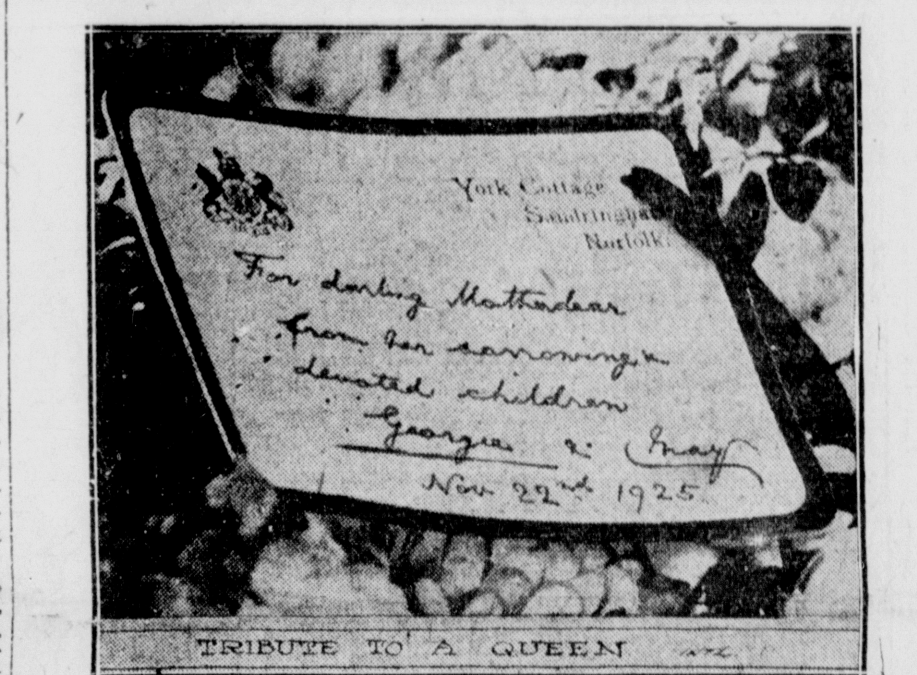 York Cottage,
Sandringham,
Norfolk.
For darling Motherdear
from her sorrowing &
devoted children
Georgie & May
Nov 22nd 1925.
TRIBUTE TO A QUEEN